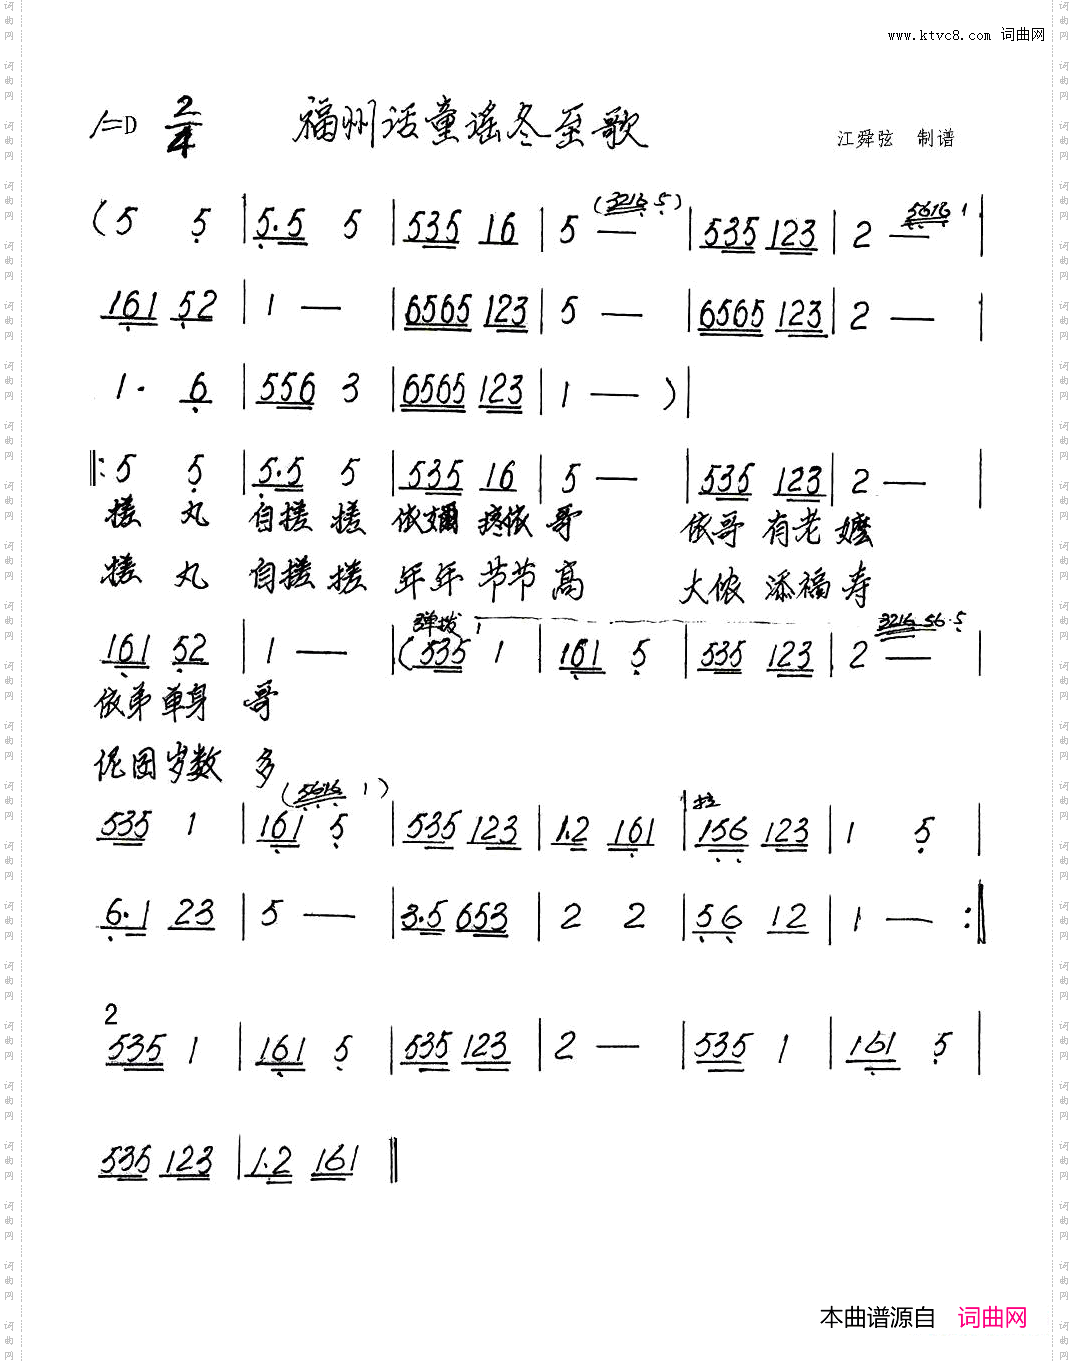 www.ktvc8.com 词曲网
1=D 2/4 福州话童谣冬至歌
江舜弦 制谱
( 5 5 | 5.5 5 | 535 16 | 5 — (3216 5) | 535 123 | 2 — 5616 1 |
161 52 | 1 — | 6565 123 | 5 — | 6565 123 | 2 — |
1. 6 | 556 3 | 6565 123 | 1 — ) |
‖: 5 5 | 5.5 5 | 535 16 | 5 — | 535 123 | 2 — |
搓 丸 自搓 搓 依 疼依 哥 依哥 有老 嬷
搓 丸 自搓 搓 年年 节节 高 大侬 添福 寿
弹拨 1 3216 56.5
161 52 | 1 — | (535 1 | 161 5 | 535 123 | 2 — |
依弟 单身 哥
伲囝 岁数 多
(5616 1) 拉
535 1 | 161 5 | 535 123 | 1.2 161 | 156 123 | 1 5 |
6.1 23 | 5 — | 3.5 653 | 2 2 | 56 12 | 1 — :‖
2
535 1 | 161 5 | 535 123 | 2 — | 535 1 | 161 5 |
535 123 | 1.2 161 ‖
本曲谱源自 词曲网